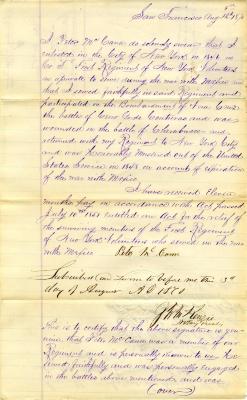 San Francisco Aug 12th 187
I Peter McCann do solemly swear that I
enlisted in the City of New York in 1846 in
Co I First Regiment of New York Volunteers
as a private to serve during the war with Mexico
that I served faithfully in said Regiment and
participated in the Bombardment of Vera Cruz
the battles of Cerro Gordo Contreras and was
wounded in the battle of Cherubusco and
returned with my Regiment to New York City
and was honorably mustered out of the United
States Service in 1848 on account of expiration
of the war with Mexico
I have received Eleven
months pay in accordance with Act passed
July 10th entitled an Act for the relief of
the surviving members of the First Regiment
of New York Volunteers who served in the war
with Mexico Peter McCann
Subscribed and sworn to before me this 3rd
day of August A.D. 187
Notary Public
This is to certify that the above signature is genu
ine that Peter McCann was a member of our
Regiment and is personally known to us he
served faithfully and was personally engaged
in the battles above mentioned and was
(over)